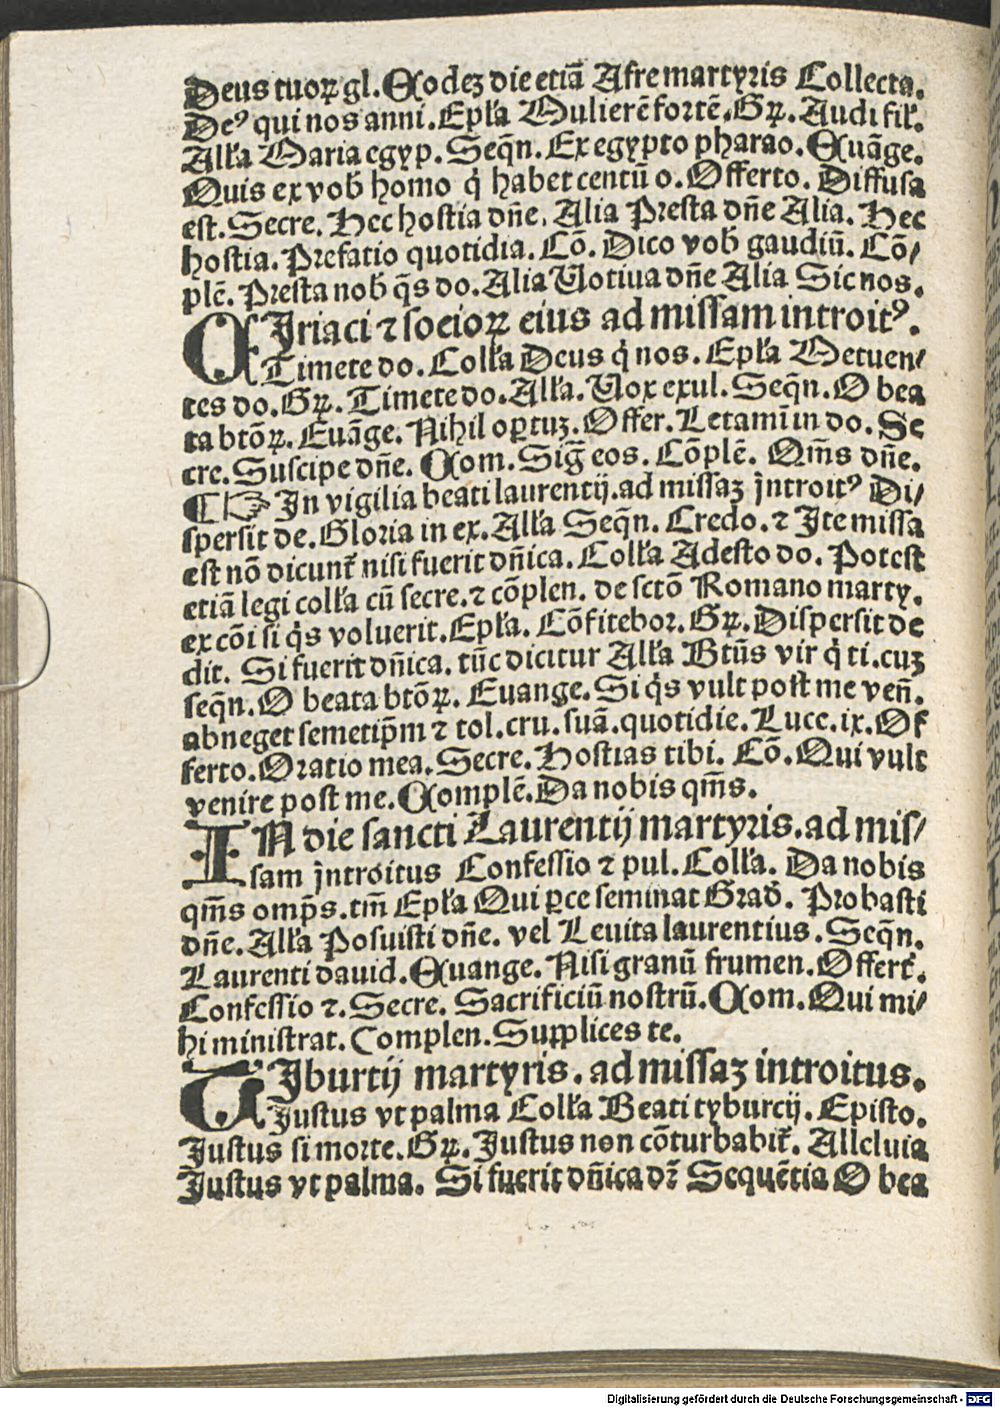 Deus tuoꝝ gl. Eodeꝫ die etiā Afre martyris Collecta.
Deꝰ qui nos anni. Epl'a Mulierē fortē. Gꝝ. Audi fil'.
All'a Maria egyp. Seqn̄. Ex egypto pharao. Euāge.
Quis ex vob' homo q' habet centū o. Offerto. Diffusa
est. Secre. Hec hostia dn̄e. Alia Presta dn̄e Alia. Hec
hostia. Prefatio quotidia. Cō. Dico vob' gaudiū. Cō/
plē. Presta nob' q̄s do. Alia Uotiua dn̄e Alia Sic nos.
CIriaci ⁊ socioꝝ eius ad missam introitꝰ.
Timete do. Coll'a Deus q' nos. Epl'a Metuen/
tes do. Gꝝ. Timete do. All'a. Uox exul. Seqn̄. O bea
ta btōꝝ. Euāge. Nihil oꝑtuꝫ. Offer. Letamī in do. Se
cre. Suscipe dn̄e. Com. Siḡ eos. Cōplē. Qm̄s dn̄e.
¶ ☞ In vigilia beati laurentij. ad missaꝫ introitꝰ Di/
spersit de. Gloria in ex. All'a Seqn̄. Credo. ⁊ Ite missa
est nō dicunt' nisi fuerit dn̄ica. Coll'a Adesto do. Potest
etiā legi coll'a cū secre. ⁊ cōplen. de sctō Romano marty.
ex cōi si q's voluerit. Epl'a. Cōfitebor. Gꝝ. Dispersit de
dit. Si fuerit dn̄ica. tūc dicitur All'a Btūs vir q' ti. cuꝫ
seqn̄. O beata btōꝝ. Euange. Si q's vult post me ven̄.
abneget semetip̄m ⁊ tol. cru. suā. quotidie. Luce. ix. Of
ferto. Oratio mea. Secre. Hostias tibi. Cō. Qui vult
venire post me. Complē. Da nobis qm̄s.
IN die sancti Laurentij martyris. ad mis/
sam introitus Confessio ⁊ pul. Coll'a. Da nobis
qm̄s omp̄s. tm̄ Epl'a Qui ꝑce seminat Grad'. Probasti
dn̄e. All'a Posuisti dn̄e. vel Leuita laurentius. Seqn̄.
Laurenti dauid. Euange. Nisi granū frumen. Offert'.
Confessio ⁊. Secre. Sacrificiū nostrū. Com. Qui mi/
hi ministrat. Complen. Supplices te.
TIburtij martyris. ad missaꝫ introitus.
Justus vt palma Coll'a Beati tyburcij. Episto.
Justus si morte. Gꝝ. Justus non cōturbabit'. Alleluia
Justus vt palma. Si fuerit dn̄ica dr̄ Sequētia O bea
Digitalisierung gefördert durch die Deutsche Forschungsgemeinschaft - DFG